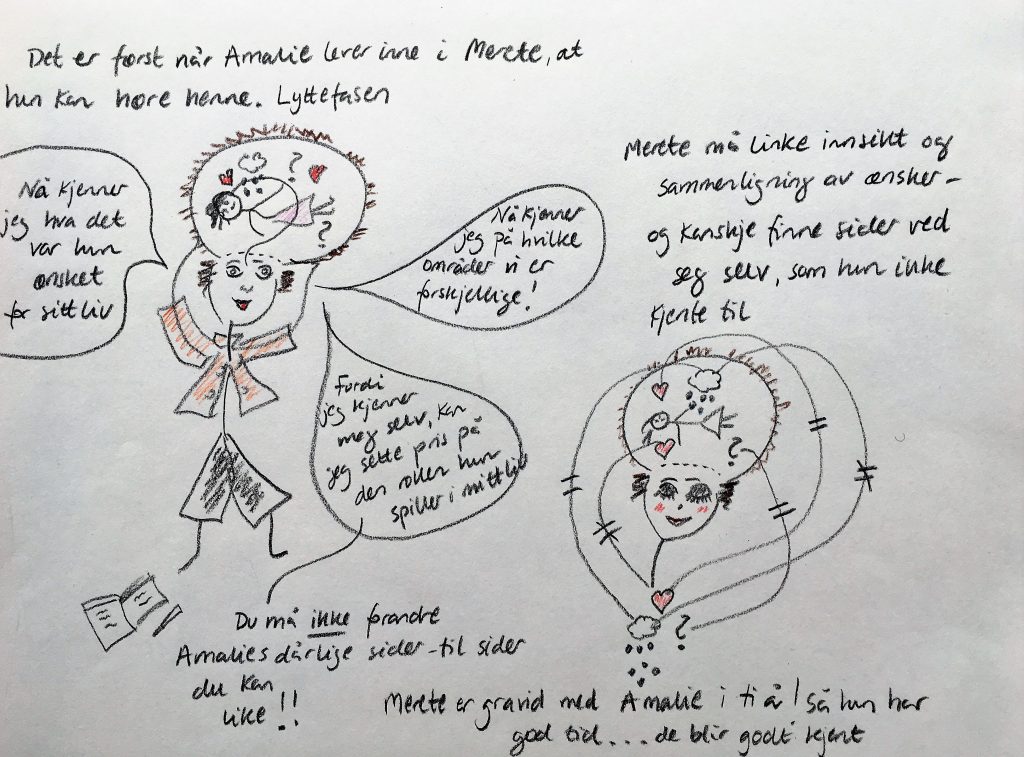 Det er først når Amalie lever inne i Merete, at
hun kan høre henne. Lyttefasen
Nå kjenner
jeg hva det
var hun
ønsket
for sitt liv
Nå kjenner
jeg på hvilke
områder vi er
forskjellige!
Fordi
jeg kjenner
meg selv, kan
jeg sette pris på
den rollen hun
spiller i mitt liv
Du må ikke forandre
Amalies dårlige sider - til sider
du kan
like!!
Merete må linke innsikt og
sammenligning av ønsker -
og kanskje finne sider ved
seg selv, som hun ikke
kjente til
?
?
?
?
Merete er gravid med Amalie i ti år! Så hun har
god tid.... de blir godt kjent